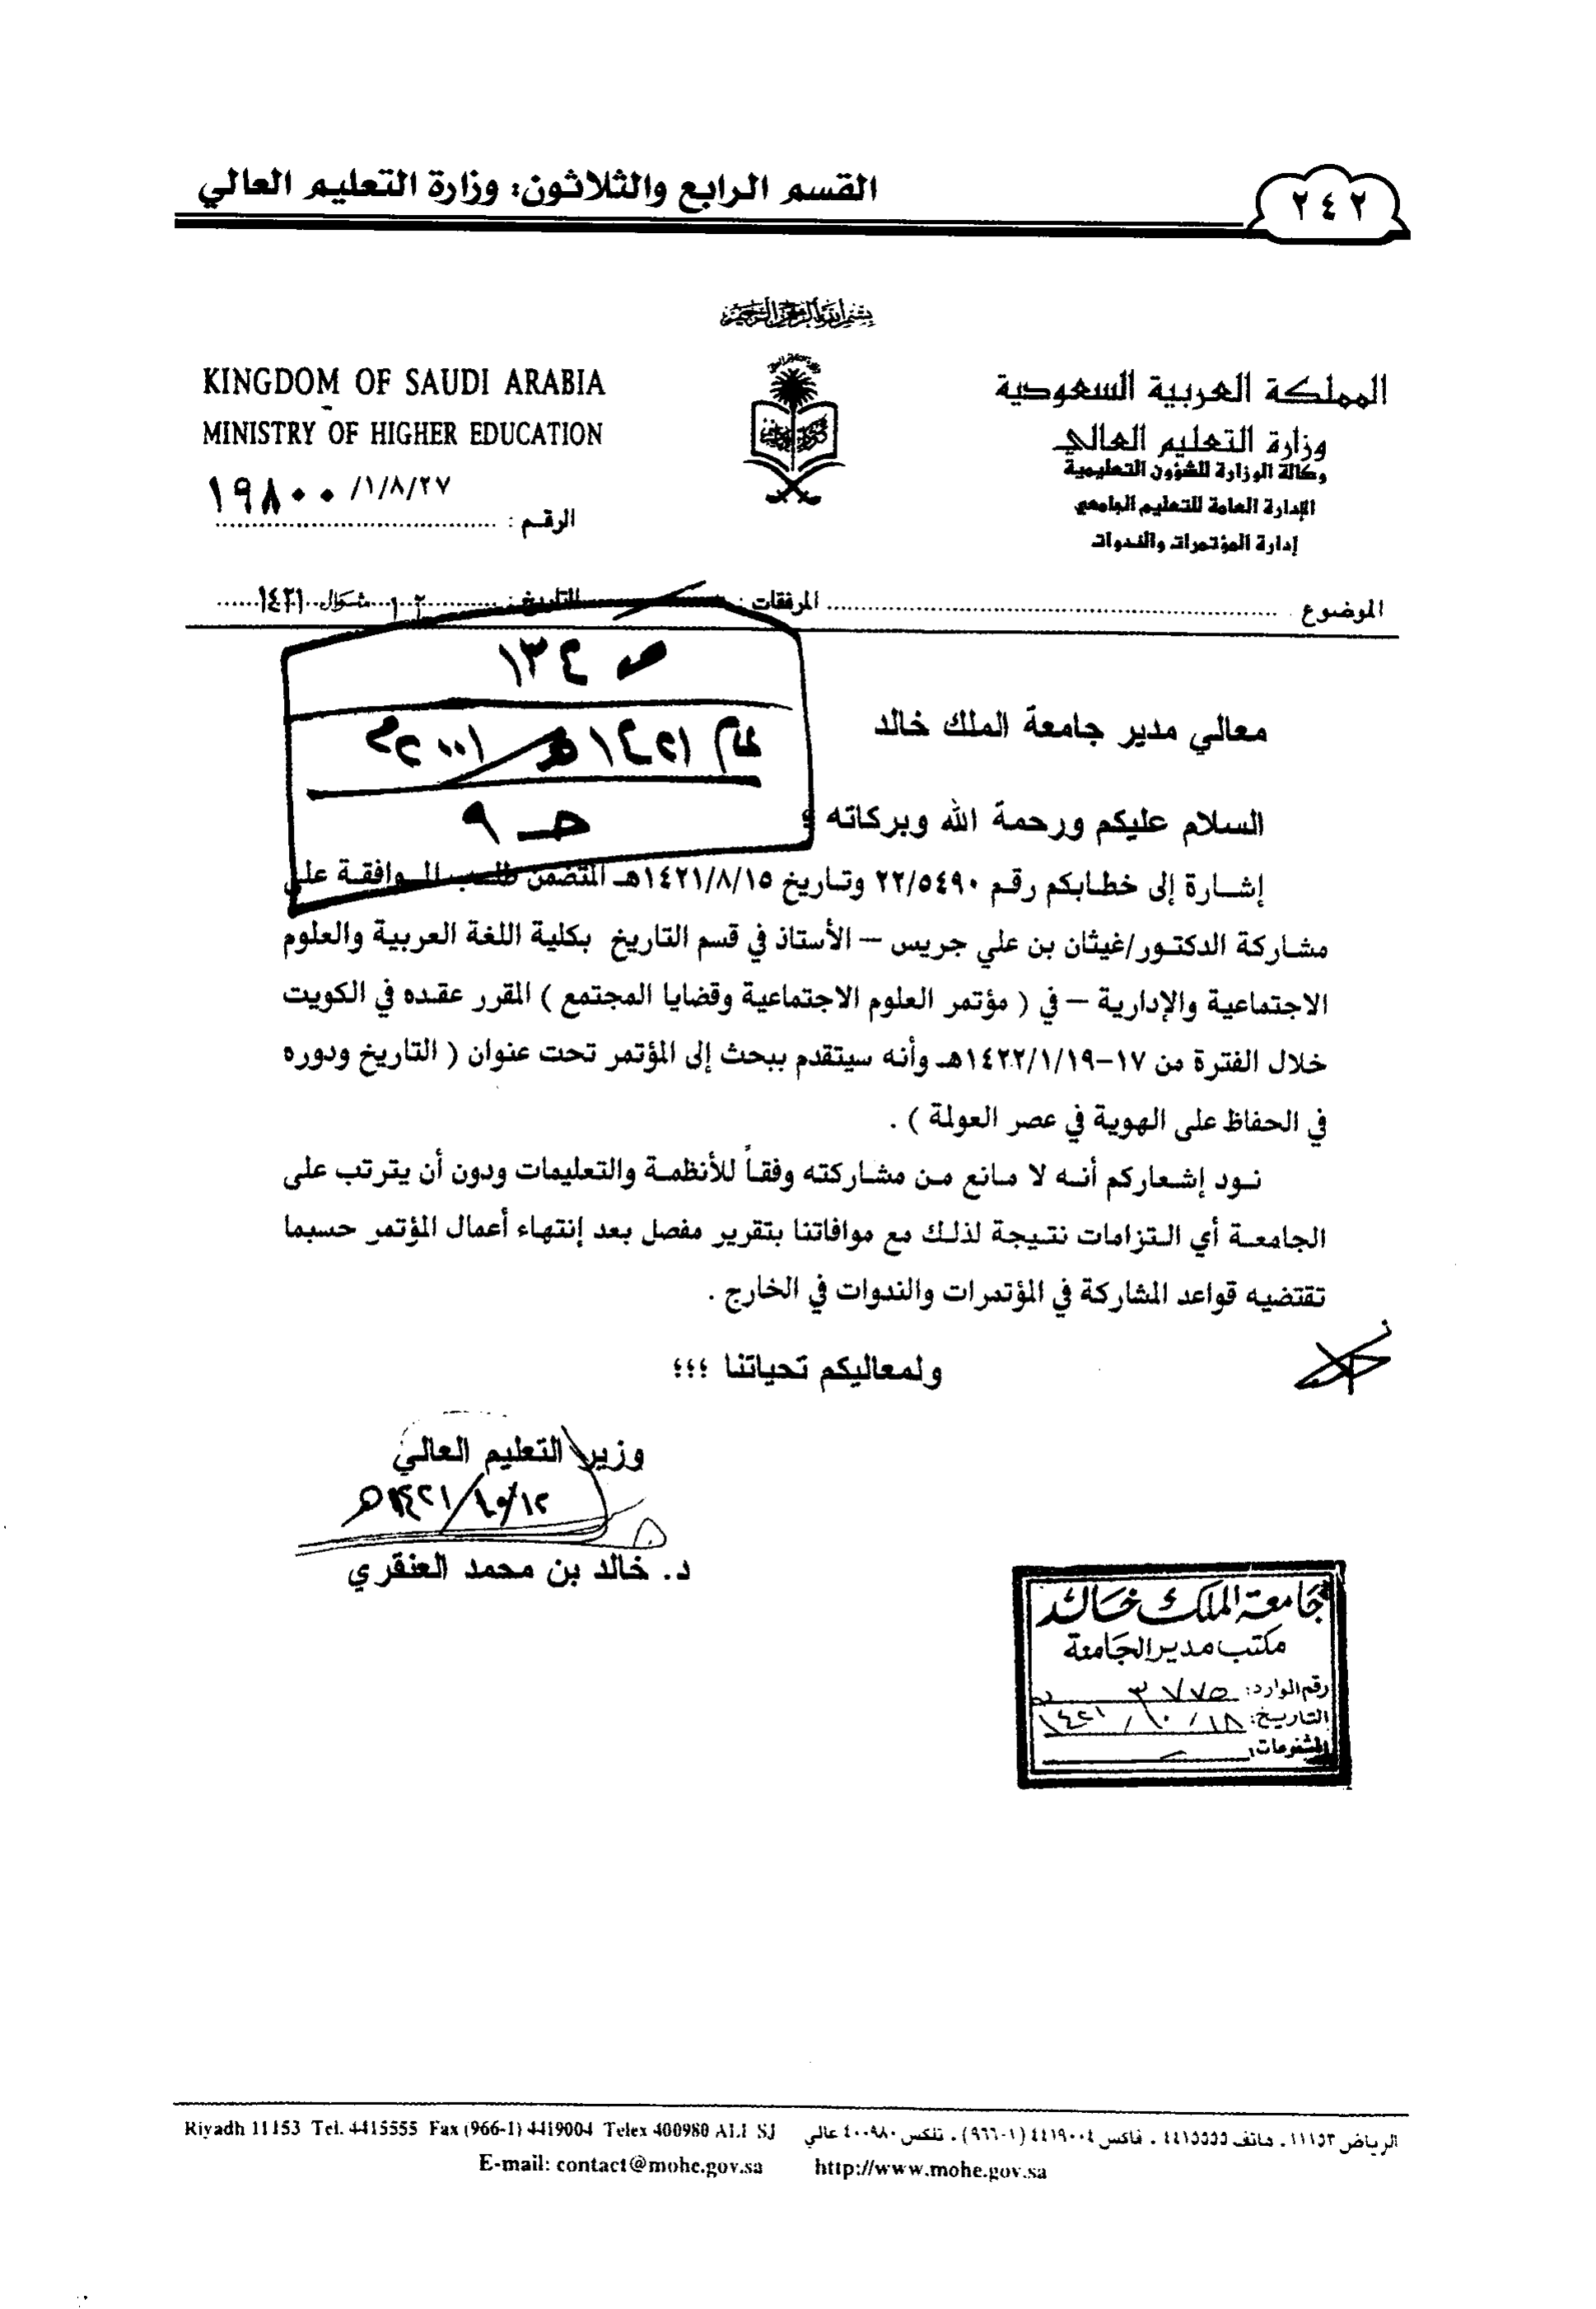 ٢٤٢
القسم الرابع والثلاثون: وزارة التعليم العالي
بسم الله الرحمن الرحيم
المملكة العربية السعودية
وزارة التعليم العالي
وكالة الوزارة للشؤون التعليمية
الإدارة العامة للتعليم الجامعي
إدارة المؤتمرات والندوات
KINGDOM OF SAUDI ARABIA
MINISTRY OF HIGHER EDUCATION
١٩٨٠٠ /١/٨/٢٧
الرقم :
الموضوع : المرفقات : التاريخ : شوال ١٤٢١
ص ١٣٤
١٤٢١هـ/٢٠٠١م
جـ ٩
معالي مدير جامعة الملك خالد
السلام عليكم ورحمة الله وبركاته
إشارة إلى خطابكم رقم ٢٢/٥٤٩٠ وتاريخ ١٤٢١/٨/١٥هـ المتضمن طلب الموافقة على
مشاركة الدكتور/غيثان بن علي جريس – الأستاذ في قسم التاريخ بكلية اللغة العربية والعلوم
الاجتماعية والإدارية – في ( مؤتمر العلوم الاجتماعية وقضايا المجتمع ) المقرر عقده في الكويت
خلال الفترة من ١٧-١٤٢٢/١/١٩هـ وأنه سيتقدم ببحث إلى المؤتمر تحت عنوان ( التاريخ ودوره
في الحفاظ على الهوية في عصر العولمة ) .
نود إشعاركم أنه لا مانع من مشاركته وفقاً للأنظمة والتعليمات ودون أن يترتب على
الجامعة أي التزامات نتيجة لذلك مع موافاتنا بتقرير مفصل بعد إنتهاء أعمال المؤتمر حسبما
تقتضيه قواعد المشاركة في المؤتمرات والندوات في الخارج .
ولمعاليكم تحياتنا ؛؛؛
وزير التعليم العالي
١٤٢١/١٠/١٢هـ
د. خالد بن محمد العنقري
جامعة الملك خالد
مكتب مدير الجامعة
رقم الوارد: ٣٧٧٥
التاريخ: ١٨/١٠/١٤٢١
المشفوعات:
الرياض ١١١٥٣ . هاتف ٤٤١٥٥٥٥ . فاكس ٤٤١٩٠٠٤ (١-٩٦٦) . تلكس ٤٠٠٩٨٠ عالي
Riyadh 11153 Tel. 4415555 Fax (966-1) 4419004 Telex 400980 ALI SJ
E-mail: contact@mohe.gov.sa http://www.mohe.gov.sa